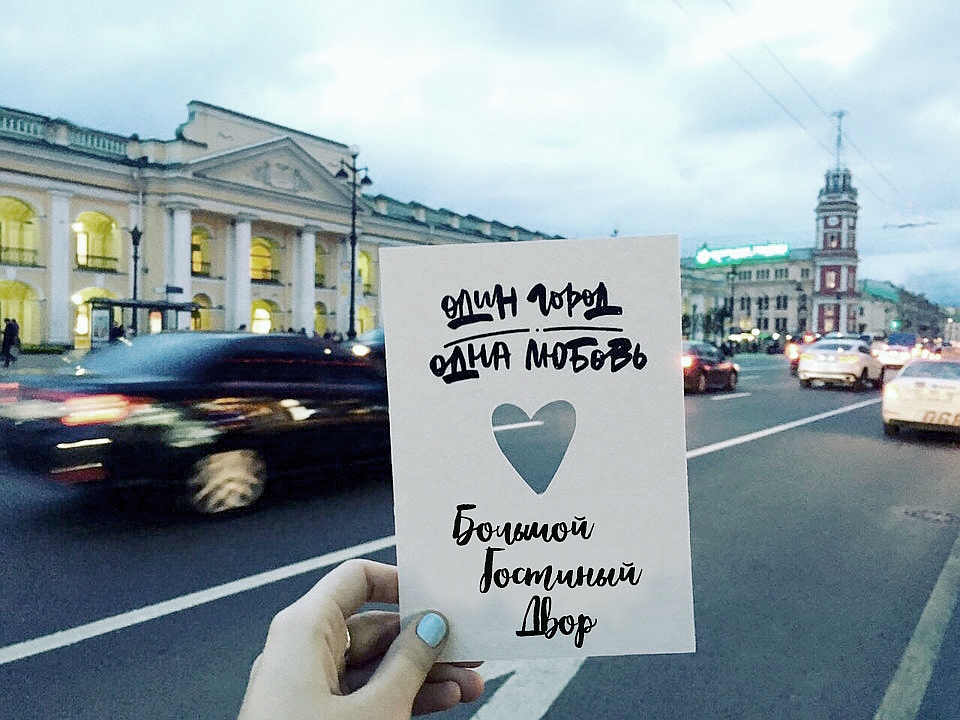 один город
одна любовь
Большой
Гостиный
Двор